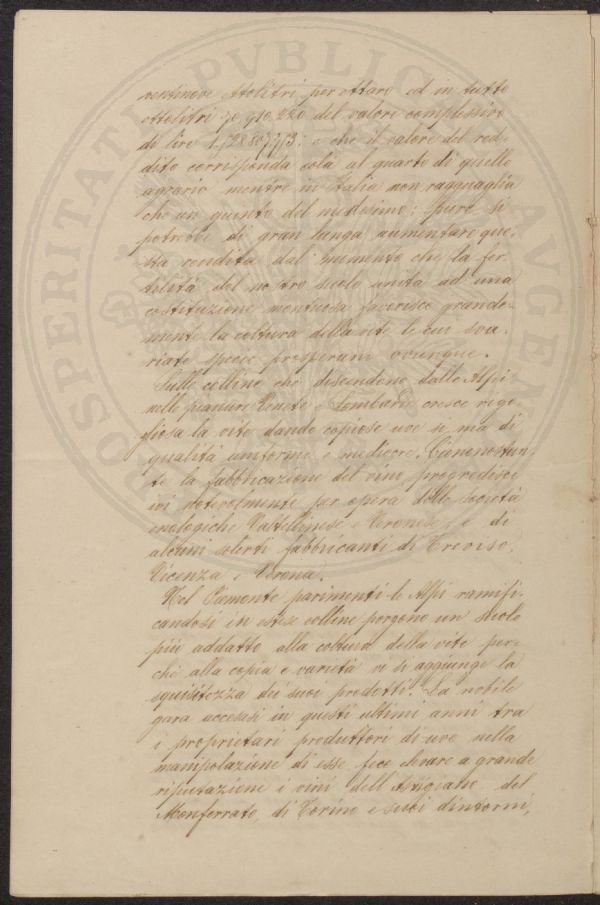 ventinove ettolitri per ettaro ed in tutto
ettolitri 70,910,220 del valore complessivo
di lire : e che il valore del red-
dito corrisponda colà al quarto di quello
agrario mentre in Italia non ragguaglia
che un quinto del medesimo; pure si
potrebbe di gran lunga aumentare que-
sta rendita dal momento che la fer-
tilità del nostro suolo unita ad una
costituzione montuosa favorisce grande-
mente la coltura della vite le cui sva-
riate specie prosperano ovunque.
Sulle colline che discendono dalle Alpi
nelle pianure Venete e Lombarde cresce rigo-
gliosa la vite dando copiose uve sì, ma di
qualità uniforme e mediocre. Ciò nonostan-
te la fabbricazione dei vini progredisce
ivi notevolmente per opera delle società
enologiche Valtellinese e Veronese, e di
alcuni solerti fabbricanti di Treviso,
Vicenza e Verona.
Nel Piemonte parimenti le Alpi ramifi-
candosi in estese colline porgono un suolo
più addatto alla coltura della vite per-
chè alla copia e varietà vi si aggiunge la
squisitezza dei suoi prodotti. La nobile
gara accesasi in questi ultimi anni tra
i proprietari produttori di uve nella
manipolazione di esse fece elevare a grande
riputazione i vini dell'Astigiano, del
Monferrato, di Torino e suoi dintorni,
PROSPERITATI PVBLICAE AVGEN